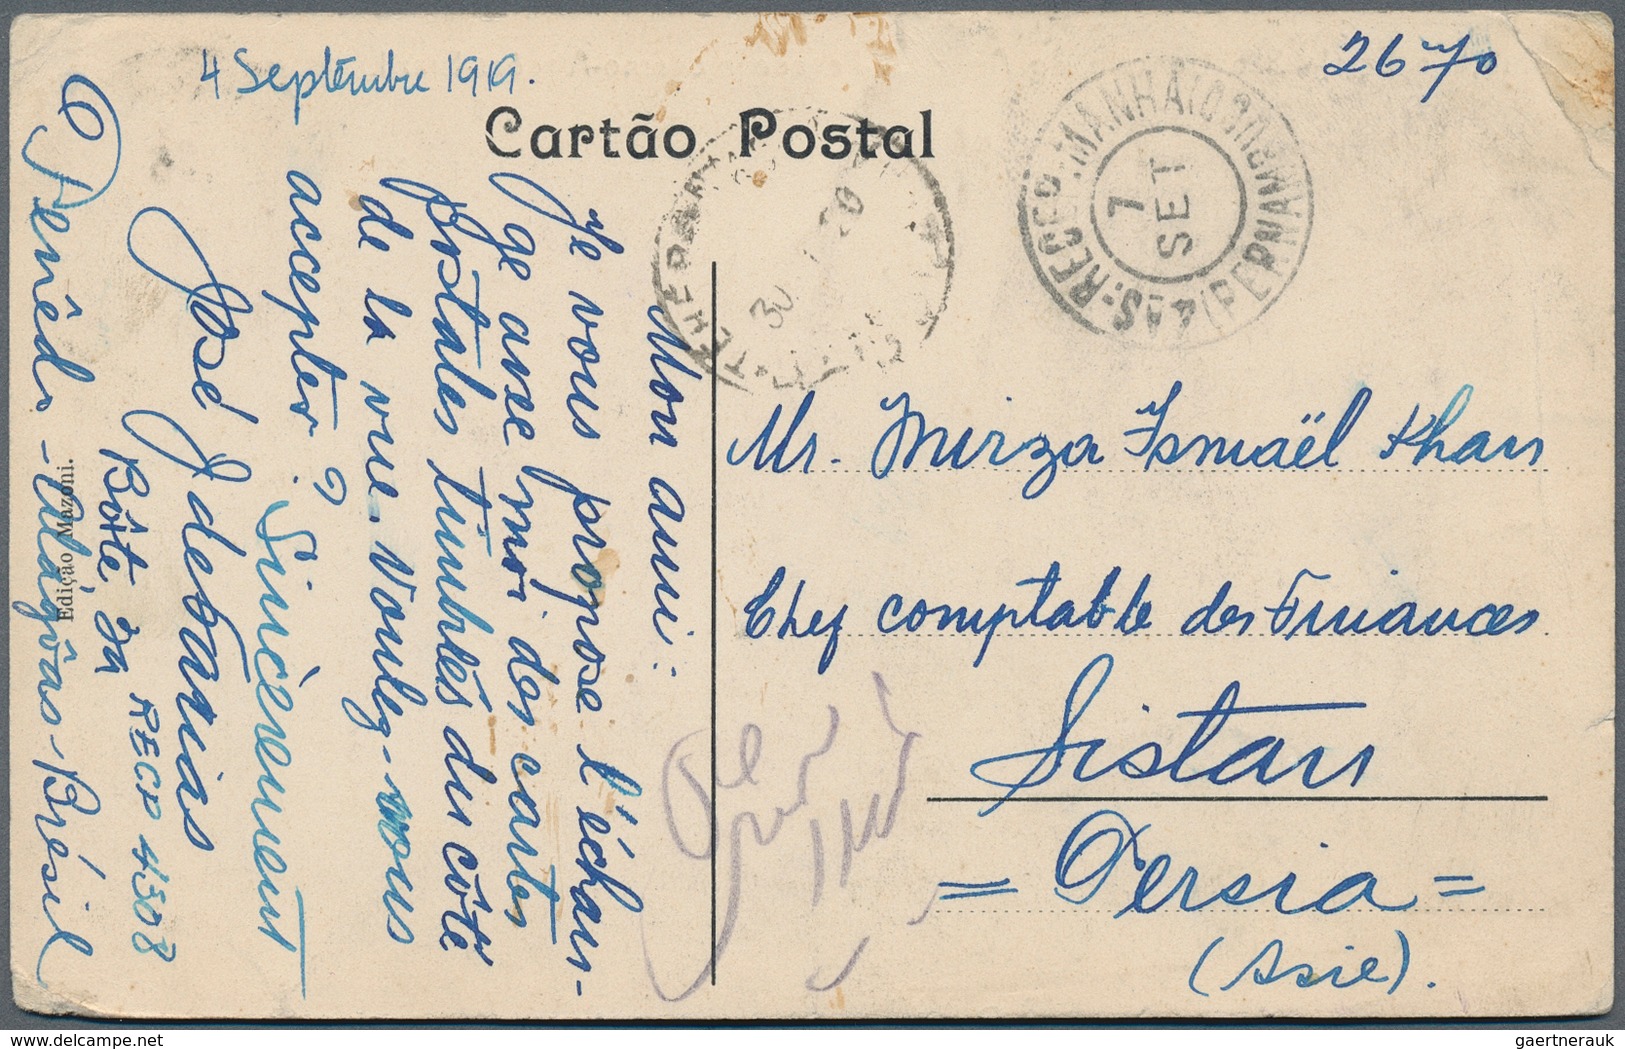 4 Septembre 1919.
2670
Cartão Postal
Mon ami:
Je vous propose l'échan-
ge avec moi des cartes
postales timbrées du côté
de la vue. Voulez-vous
accepter?
Sincèrement
José J. de Farias
Bôite 3n
RECP 4308
Penêdo - Alagôas - Brésil
Edição Mazoni.
7
SET
(PERNAMBUCO)
TEHERAN
30
Mr. Mirza Ismaël Khan
Chef comptable des Finances
Sistan
= Persia =
(Asie).
delcampe.net
gaertnerauk